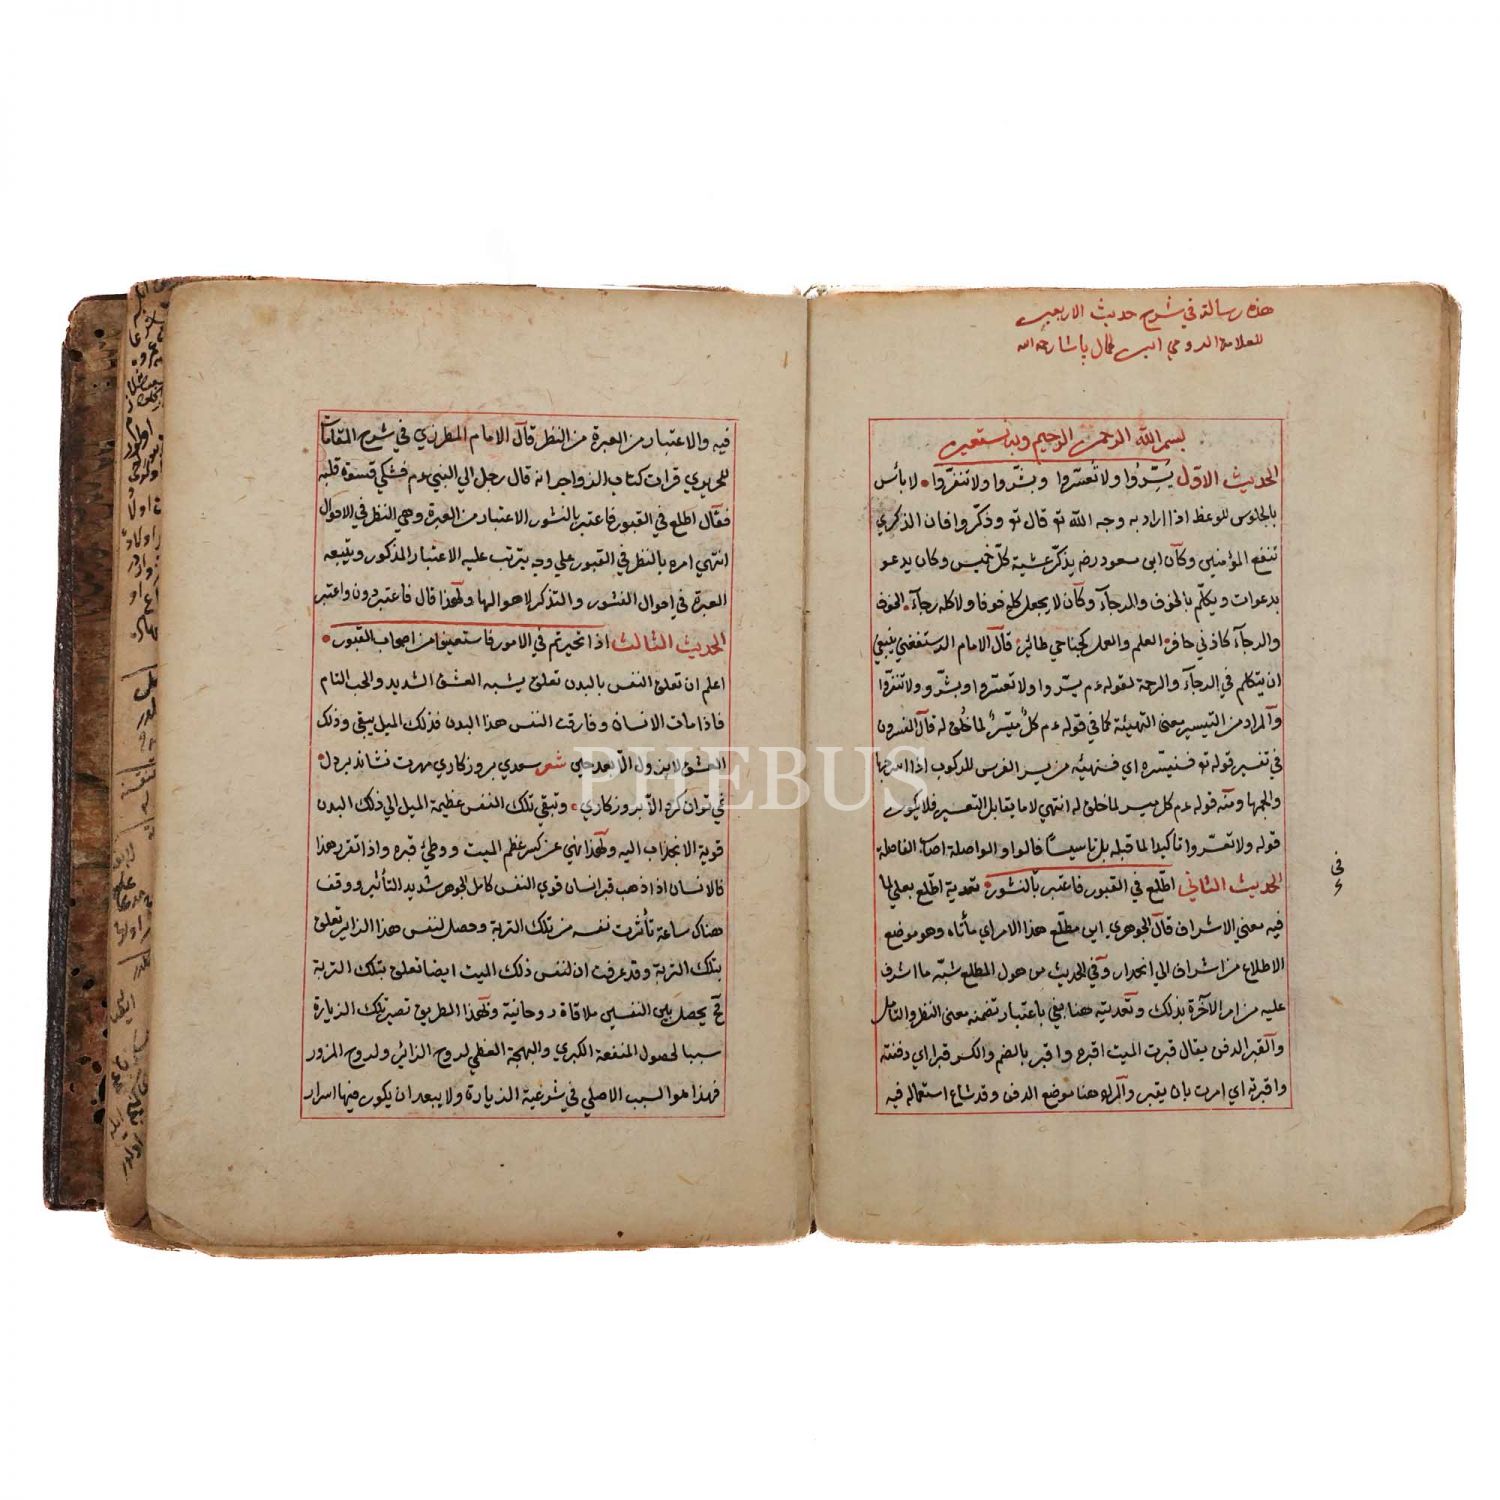 هذه رسالة في شرح حديث الاربعين
للعلامة الرومي ابن كمال پاشا رحمه الله
بسم الله الرحمن الرحيم وبه نستعين
الحديث الاول يسّروا ولا تعسّروا وبشّروا ولا تنفّروا لا بأس
بالجلوس للوعظ اذا اراد به وجه الله تع قال تع وذكّر فان الذكري
تنفع المؤمنين وكان ابن مسعود رضه يذكّر عشية كل خميس وكان يدعو
بدعوات ويكلّم بالخوف والرجآء وكان لا يجعل كله خوفا ولا كله رجآء الخوف
والرجآء كاذني حافر العلم والعمل كجناحي طائر قال الامام الرستغفني ينبغي
ان يتكلم في الرجآء والرحمة لقوله ءم يسّروا ولا تعسّروا وبشّروا ولا تنفّروا
والمراد من التيسير معنى التهيئة كما في قوله ءم كلٌ ميسّرٌ لما خُلق له قال المفسرون
في تفسير قوله تع فسنيسّره اي فسنهيّئه من يسر الفرس للركوب اذا اسرجها
والجمها ومنه قوله ءم كل ميسر لما خلق له انتهي لا ما يقابل التعسير فلا يكون
قوله ولا تعسّروا تاكيدا لما قبله بل تاسيسًا قالوا والواصلة اصاب الفاصلة
الحديث الثاني اطّلع في القبور فاعتبر بالنشور تعدية اطّلع بعلي لما
فيه معني الاشراف قال الجوهري اين مطّلع هذا الامر اي مأتاه وهو موضع
الاطلاع من اشراف الي انحدار وفي الحديث من هول المطلع شبّه ما اشرف
عليه من امر الآخرة بذلك وتعديته هنا بفي باعتبار تضمنه معنى النظر والتامل
والقبر الدفن يقال قبرت الميت اقبره واقبر بالضم والكسر قبرا اي دفنته
واقبرته اي امرت بان يقبر والمراد هنا موضع الدفن وقد شاع استعماله فيه
في
فيه والاعتبار من العبرة من النظر قال الامام المطرزي في شرح المقامات
للحريري قرات كتاب الزواجر انه قال رجل الي النبي ءم فشكي قسوة قلبه
فقال اطلع في القبور فاعتبر بالنشور الاعتبار من العبرة وهي النظر في الاحوال
انتهي امره بالنظر في القبور علي وجه يترتب عليه الاعتبار المذكور ويتبعه
العبرة في احوال النشور والتذكر لاهوالها ولهذا قال فاعتبر دون واعتبر
الحديث الثالث اذا تحيرتم في الامور فاستعينوا من اصحاب القبور
اعلم ان تعلق النفس بالبدن تعلق يشبه العشق الشديد والحب التام
فاذا مات الانسان وفارقت النفس هذا البدن فذلك الميل يبقي وذلك
العشق لا يزول الّا بعد حين شعر سعدي بروزكاري مهرت نشاند بر دل
نمي توان كرد الّا بروزكاري وتبقي تلك النفس عظيمة الميل الي ذلك البدن
قوية الانجذاب اليه ولهذا نهي عن كسر عظم الميت ووطئ قبره واذا تقرر هذا
فالانسان اذا ذهب قبر انسان قوي النفس كامل الجوهر شديد التأثير ووقف
هناك ساعة تأثرت نفسه من تلك التربة وحصل لنفس هذا الزاير تعلق
بتلك التربة وقد عرفت ان لنفس ذلك الميت ايضا تعلق بتلك التربة
فح يحصل بين النفسين ملاقاة روحانية ولهذا الطريق تصير تلك الزيارة
سببا لحصول المنفعة الكبري والبهجة العظمي لروح الزائر ولروح المزور
فهذا هو السبب الاصلي في شرعية الزيارة ولا يبعد ان يكون فيها اسرار
PHEBUS